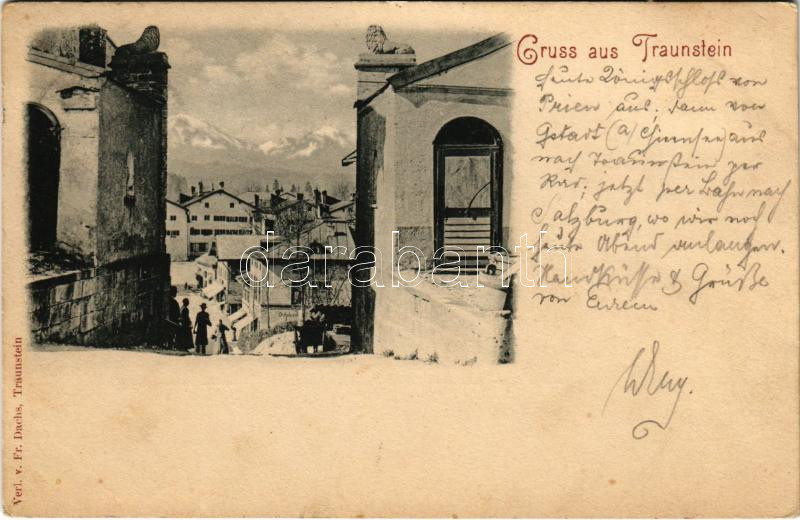 Gruss aus Traunstein
Heute Königsschloss von
Prien aus, dann von
Gstadt (a/Chiemsee) aus
nach Traunstein per
Rad, jetzt per Bahn nach
Salzburg, wo wir noch
heute Abend anlangen.
Handküsse & Grüße
von Eurem
darabanth.com
Verl. v. Fr. Dachs, Traunstein